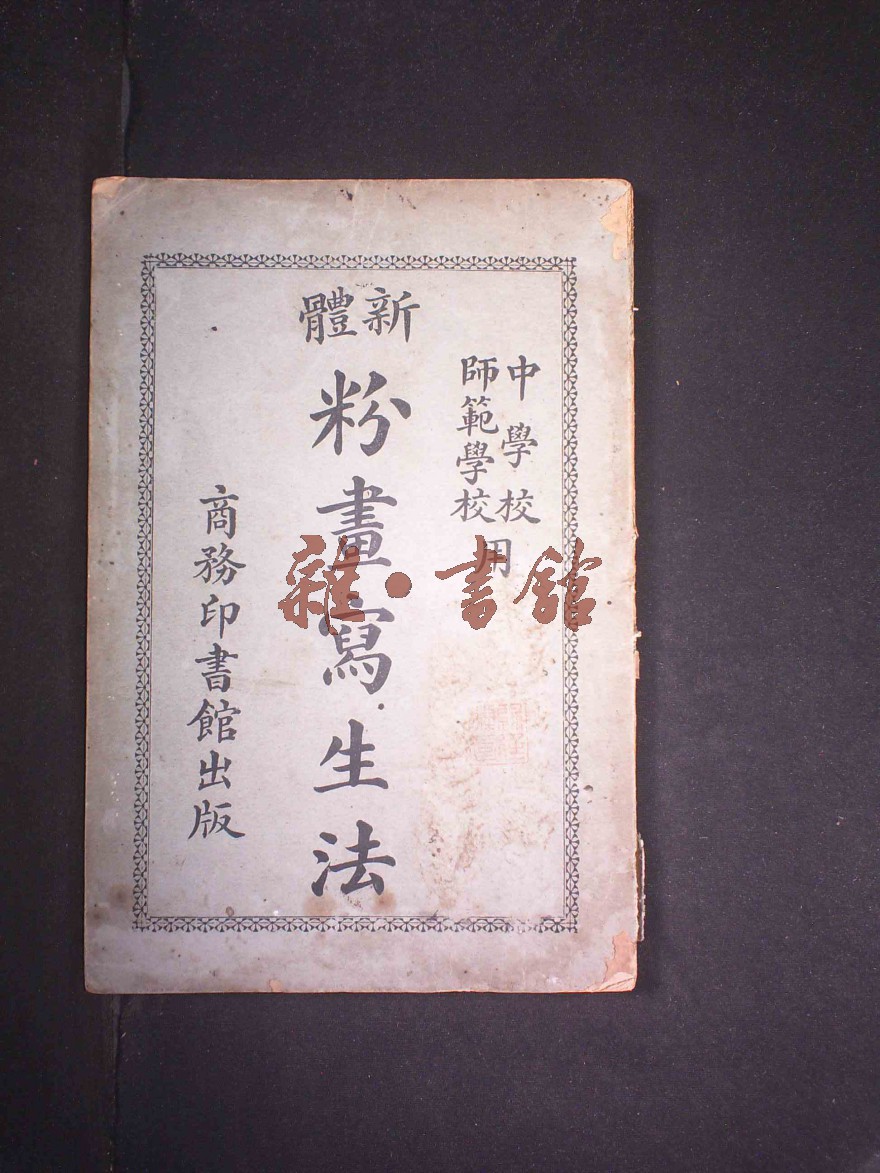 中學校
師範學校
用
新體
粉畫寫生法
商務印書館出版
雜·書館